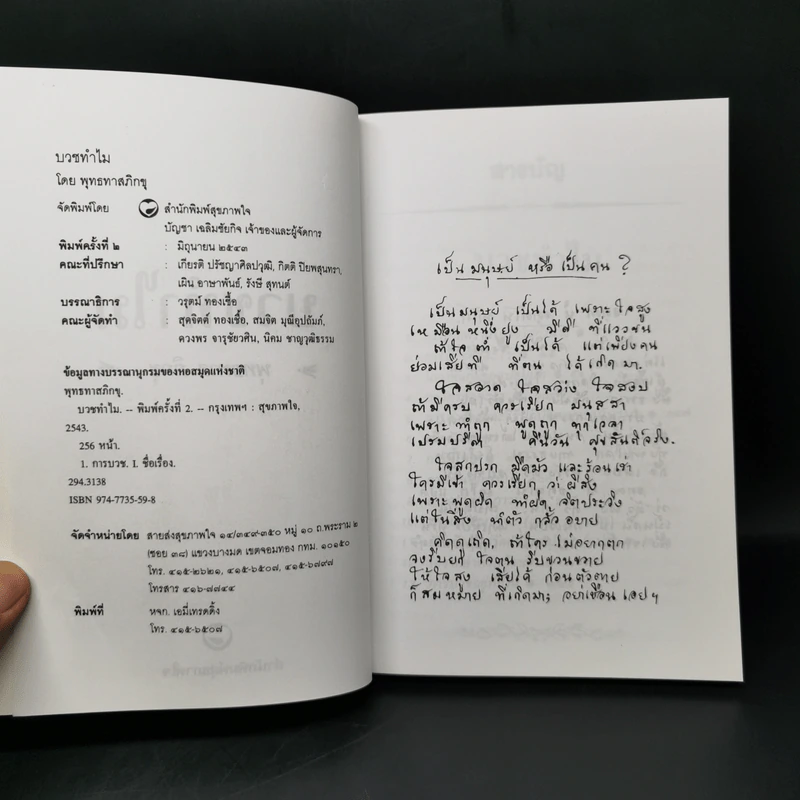 บวชทำไม
โดย พุทธทาสภิกขุ
จัดพิมพ์โดย สำนักพิมพ์สุขภาพใจ
บัญชา เฉลิมชัยกิจ เจ้าของและผู้จัดการ
พิมพ์ครั้งที่ ๒ : มิถุนายน ๒๕๔๓
คณะที่ปรึกษา : เกียรติ ปรัชญาศิลปวุฒิ, กิตติ ปิยพสุนทรา,
เผิน อาษาพันธ์, รังษี สุทนต์
บรรณาธิการ : วรุตม์ ทองเชื้อ
คณะผู้จัดทำ : สุดจิตต์ ทองเชื้อ, สมจิต มุณีอุปถัมภ์,
ดวงพร จารุชัยวศิน, นิคม ชาญวุฒิธรรม
ข้อมูลทางบรรณานุกรมของหอสมุดแห่งชาติ
พุทธทาสภิกขุ.
บวชทำไม. -- พิมพ์ครั้งที่ 2. -- กรุงเทพฯ : สุขภาพใจ,
2543.
256 หน้า.
1. การบวช. I. ชื่อเรื่อง.
294.3138
ISBN 974-7735-59-8
จัดจำหน่ายโดย สายส่งสุขภาพใจ ๑๔/๓๔๙-๓๕๐ หมู่ ๑๐ ถ.พระราม ๒
(ซอย ๓๘) แขวงบางมด เขตจอมทอง กทม. ๑๐๑๕๐
โทร. ๔๑๕-๒๖๒๑, ๔๑๕-๖๕๐๗, ๔๑๕-๖๗๙๗
โทรสาร ๔๑๖-๗๗๔๔
พิมพ์ที่ หจก. เอมี่เทรดดิ้ง
โทร. ๔๑๕-๖๕๐๗
เป็นมนุษย์ หรือ เป็นคน ?
เป็นมนุษย์ เป็นได้ เพราะใจสูง
เหมือนหนึ่งยูง มีดี ที่แววขน
ถ้าใจต่ำ เป็นได้ แต่เพียงคน
ย่อมเสียที ที่ตน ได้เกิดมา.
ใจสอาด ใจสว่าง ใจสงบ
ถ้ามีครบ ควรเรียก มนุสสา
เพราะทำถูก พูดถูก ทุกเวลา
เปรมปรีดา คืนวัน ศุขสันติ์จริง.
ใจสกปรก มืดมัว และร้อนเร่า
ใครมีเข้า ควรเรียก ว่าผีสิง
เพราะพูดผิด ทำผิด จิตประวิง
แต่ในสิ่ง นำตัว กลั้วอบาย
คิดดูเถิด, ถ้าใคร ไม่อยากตก
จงรีบยก ใจตน รีบขวนขวาย
ให้ใจสูง เสียได้ ก่อนตัวตาย
ก็สมหมาย ที่เกิดมา; อย่าเชือนเอยฯ